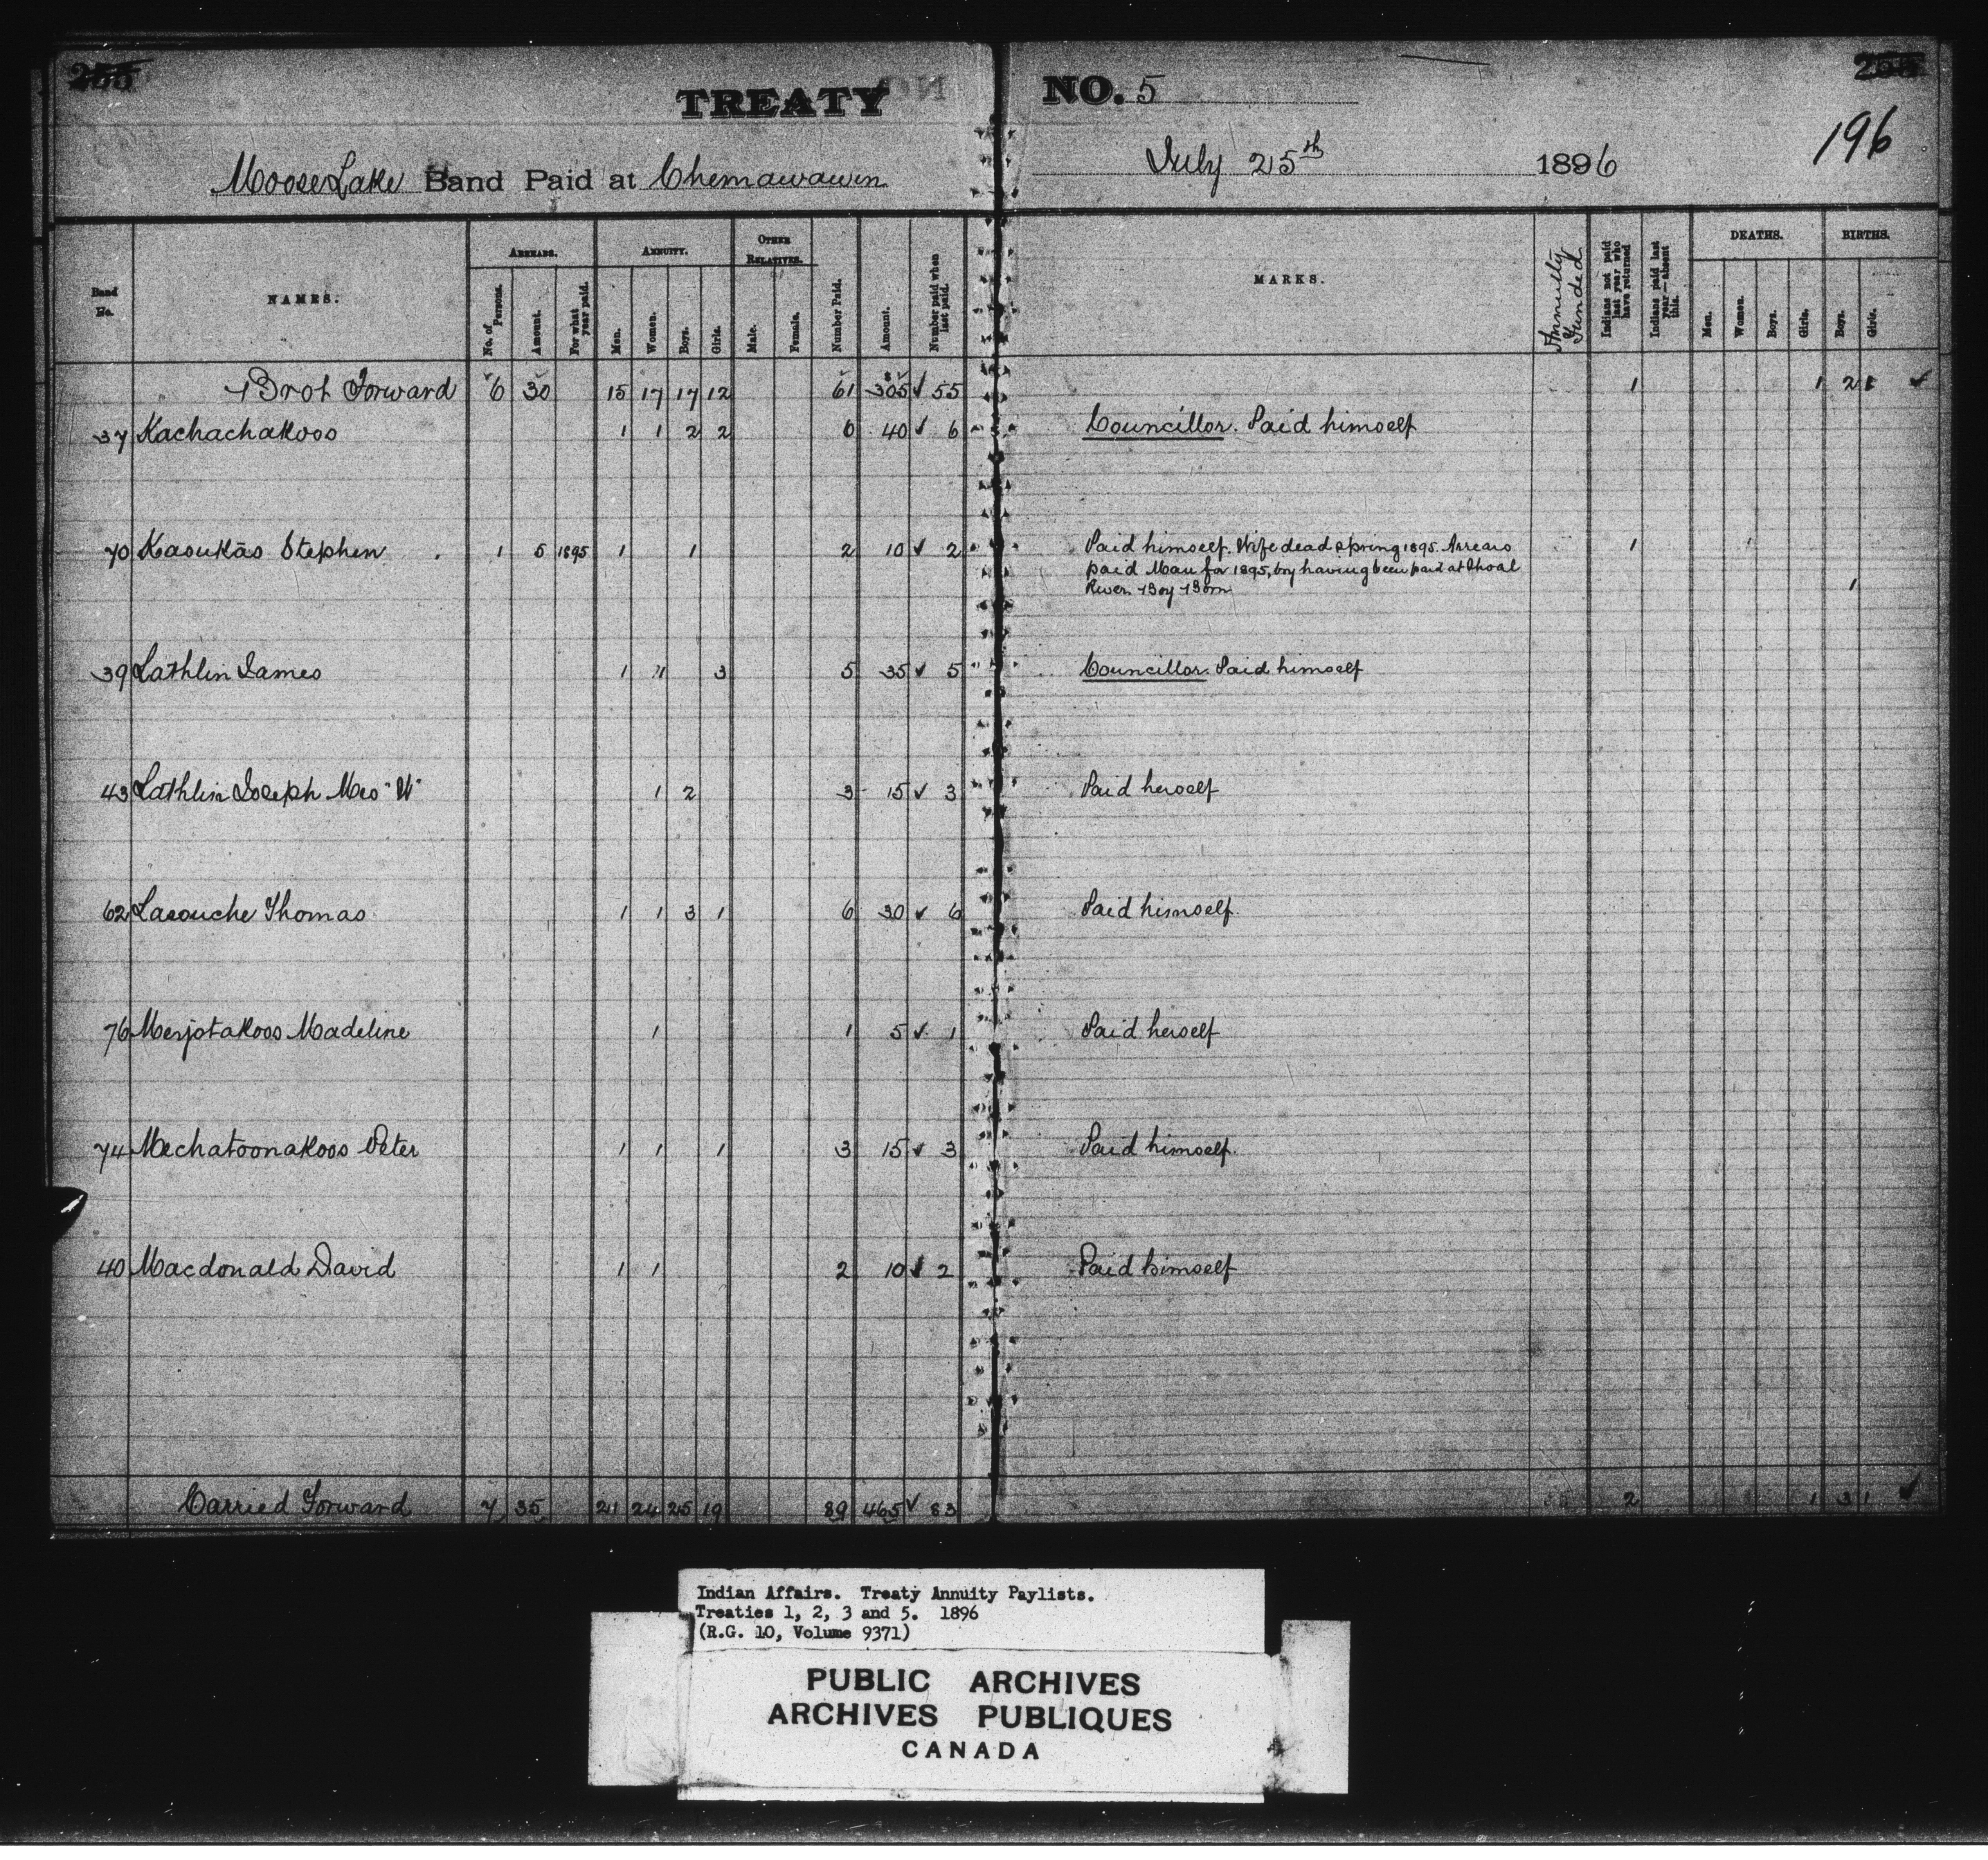 TREATY NO. 5
196
Moose Lake Band Paid at Chemawawin July 25th 1896
Band No. NAMES. ARREARS. ANNUITY. OTHER RELATIVES. Number Paid. Amount. Number paid when last paid. MARKS. Annuity Funded Indians not paid last year who have returned Indians paid last year—absent this. DEATHS. BIRTHS.
No. of Persons. Amount. For what year paid. Men. Women. Boys. Girls. Male. Female. Men. Women. Boys. Girls. Boys. Girls.
Brot Forward 6 30 15 17 17 12 61 $305 ✓ 55 1 1 2 1 ✓
37 Kachachakoos 1 1 2 2 6 40 ✓ 6 Councillor. Paid himself
70 Kasukās Stephen 1 5 1895 1 1 2 10 ✓ 2 Paid himself. Wife dead spring 1895. Arrears 1 1
paid Man for 1895, boy having been paid at Shoal
River. Boy Born 1
39 Lathlin James 1 1 3 5 35 ✓ 5 Councillor. Paid himself
43 Lathlin Joseph Mrs "W" 1 2 3 15 ✓ 3 Paid herself
62 Lacouche Thomas 1 1 3 1 6 30 ✓ 6 Paid himself.
76 Mesjotakoos Madeline 1 1 5 ✓ 1 Paid herself
74 Mechatoonakoos Peter 1 1 1 3 15 ✓ 3 Paid himself.
40 Macdonald David 1 1 2 10 ✓ 2 Paid himself
Carried Forward 7 35 21 24 25 19 89 465 ✓ 83 2 1 3 1 ✓
Indian Affairs. Treaty Annuity Paylists.
Treaties 1, 2, 3 and 5. 1896
(R.G. 10, Volume 9371)
PUBLIC ARCHIVES
ARCHIVES PUBLIQUES
CANADA